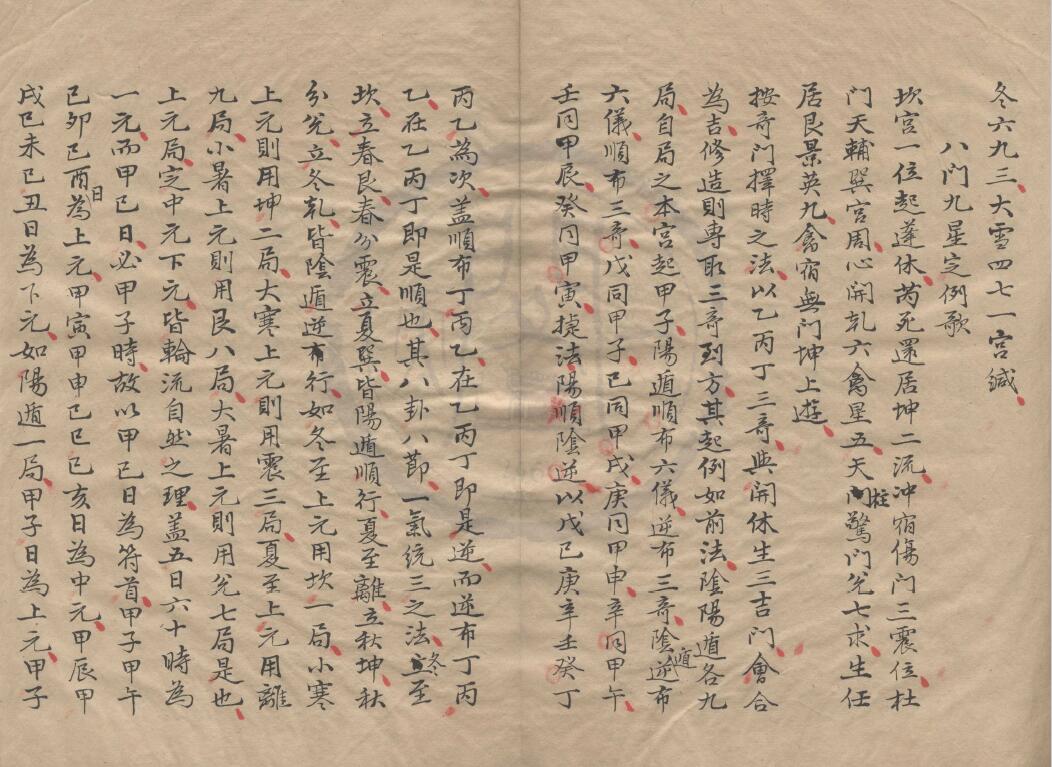 冬六九三大雪四七一宮緘
八門九星定例歌
坎宮一位起蓬休芮死還居坤二流沖宿傷門三震位杜
門天輔巽宮周心開乾六禽星五天柱驚門兌七求生任
居艮景英九禽宿無門坤上遊
按奇門擇時之法以乙丙丁三奇與開休生三吉門會合
為吉修造則專取三奇到方其起例如前法陰陽遁各九
局自局之本宮起甲子陽遁順布六儀逆布三奇陰遁逆布
六儀順布三奇戊同甲子己同甲戌庚同甲申辛同甲午
壬同甲辰癸同甲寅捷法陽順陰逆以戊己庚辛壬癸丁
丙乙為次蓋順布丁丙乙在乙丙丁即是逆而逆布丁丙
乙在乙丙丁即是順也其八卦八節一氣統三之法冬至
坎立春艮春分震立夏巽皆陽遁順行夏至離立秋坤秋
分兌立冬乾皆陰遁逆行如冬至上元用坎一局小寒
上元則用坤二局大寒上元則用震三局夏至上元用離
九局小暑上元則用艮八局大暑上元則用兌七局是也
上元局定中元下元皆輪流自然之理蓋五日六十時為
一元而甲己日必甲子時故以甲己日為符首甲子甲午
己卯己酉日為上元甲寅甲申己巳己亥日為中元甲辰甲
戌己未己丑日為下元如陽遁一局甲子日為上元甲子